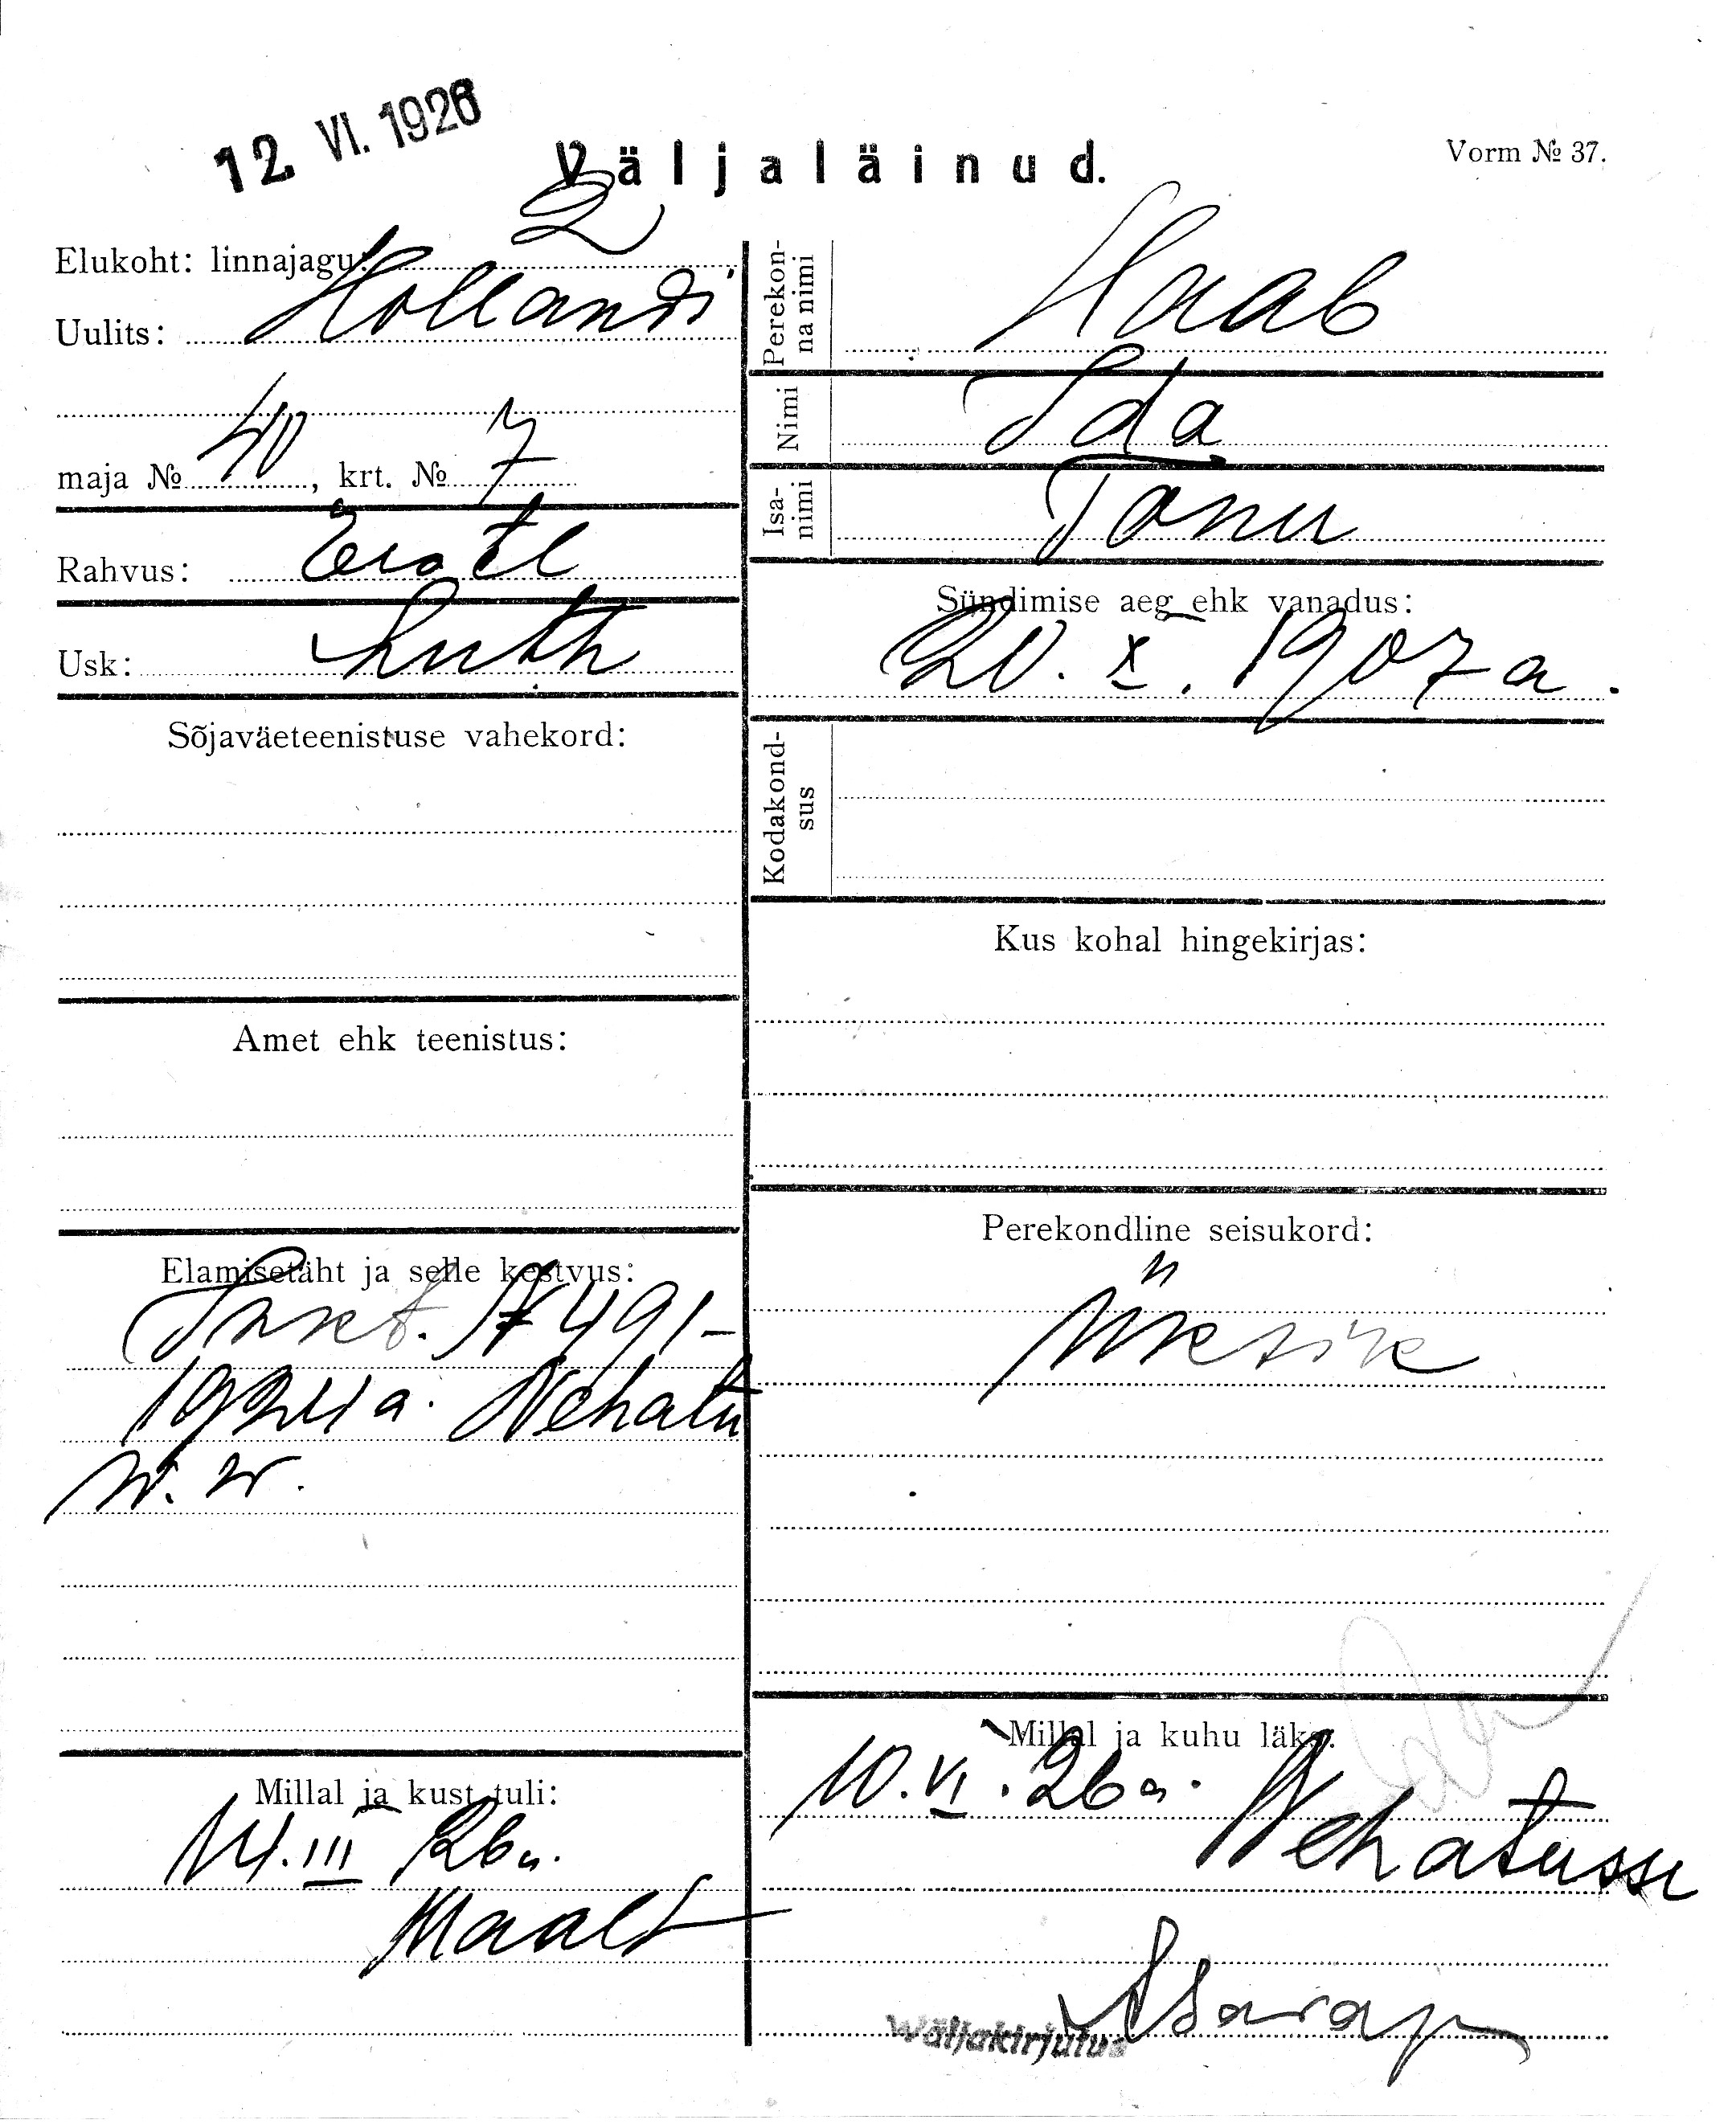 12. VI. 1926
Väljaläinud.
Vorm № 37.
Elukoht: linnajagu: 2
Uulits: Hollandi
maja № 40, krt. № 7
Rahvus: Eestl
Usk: Luth
Sõjaväeteenistuse vahekord:
Amet ehk teenistus:
Elamisetäht ja selle kestvus:
№ 491-
1924 a. Nehatu
w. w.
Millal ja kust tuli:
14. III 26 a.
Maalt
Perekonna nimi
Haab
Nimi
Ida
Isanimi
Tõnu
Sündimise aeg ehk vanadus:
20. X. 1907 a.
Kodakondsus
Kus kohal hingekirjas:
Perekondline seisukord:
Üksik
Millal ja kuhu läks:
10. VI. 26 a. Nehatusse
Wäljakirjutus